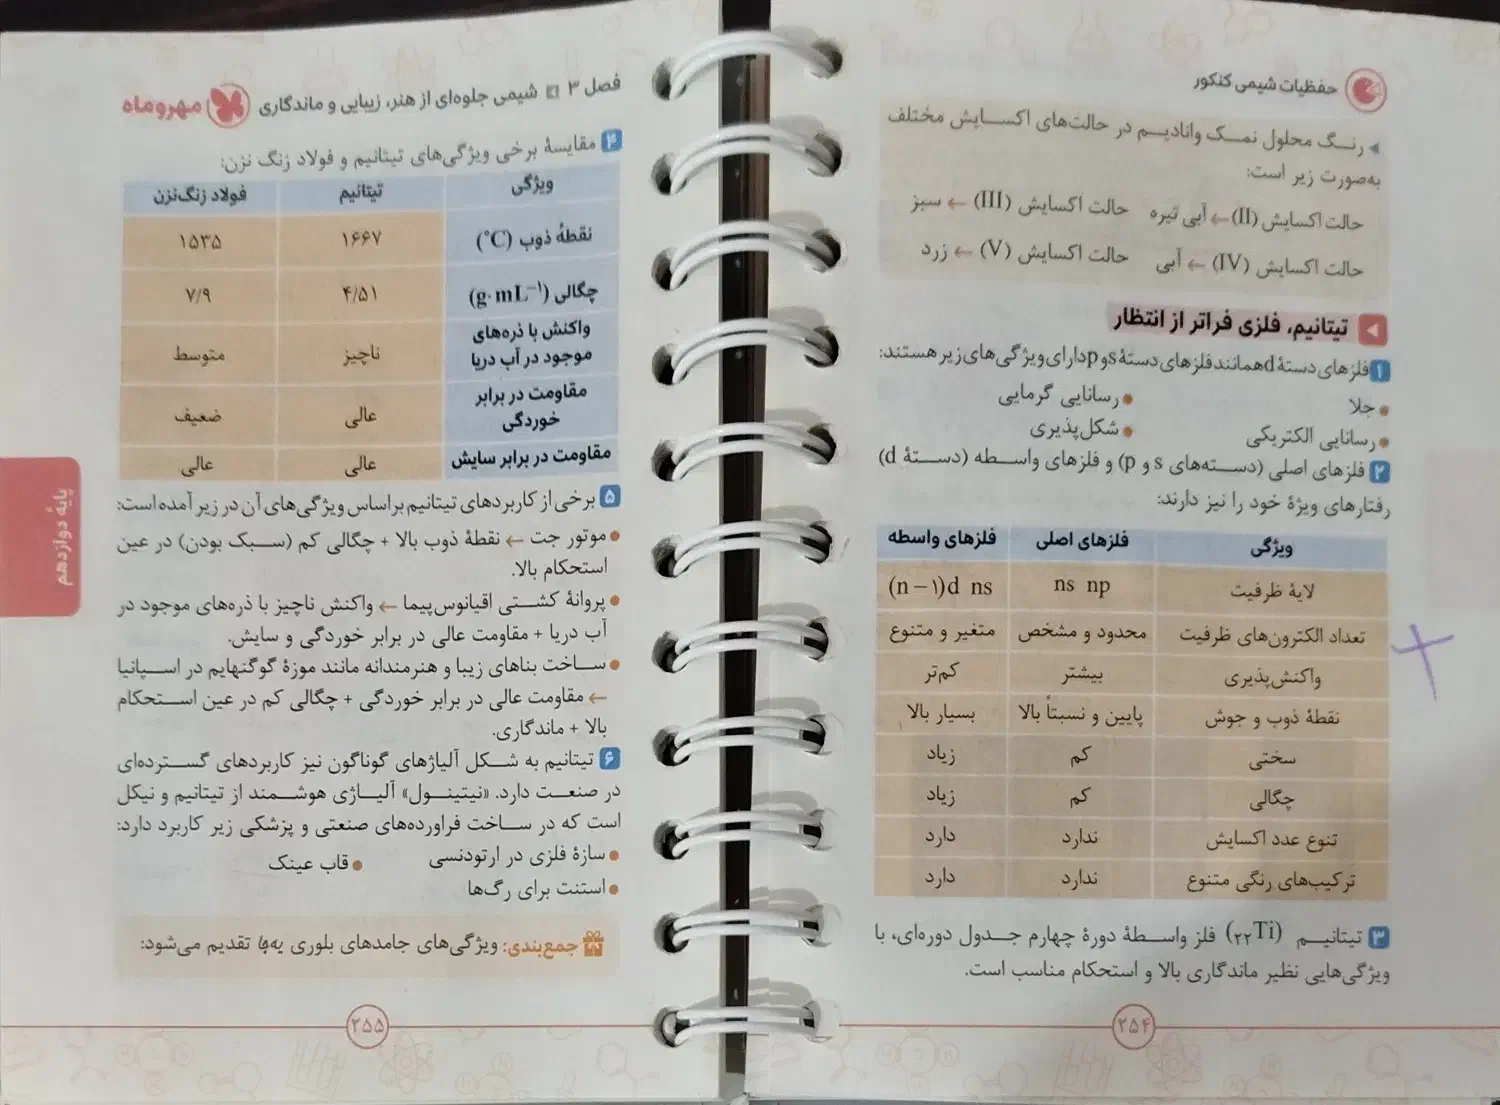 حفظیات شیمی کنکور
◂ رنگ محلول نمک وانادیم در حالت‌های اکسایش مختلف
به‌صورت زیر است:
حالت اکسایش (II) ← آبی تیره حالت اکسایش (III) ← سبز
حالت اکسایش (IV) ← آبی حالت اکسایش (V) ← زرد
تیتانیم، فلزی فراتر از انتظار
۱ فلزهای دستهٔ d همانند فلزهای دستهٔ s و p دارای ویژگی‌های زیر هستند:
• جلا • رسانایی گرمایی
• رسانایی الکتریکی • شکل‌پذیری
۲ فلزهای اصلی (دسته‌های s و p) و فلزهای واسطه (دستهٔ d)
رفتارهای ویژهٔ خود را نیز دارند:
ویژگی فلزهای اصلی فلزهای واسطه
لایهٔ ظرفیت ns np (n − ۱)d ns
تعداد الکترون‌های ظرفیت محدود و مشخص متغیر و متنوع
واکنش‌پذیری بیشتر کم‌تر
نقطهٔ ذوب و جوش پایین و نسبتاً بالا بسیار بالا
سختی کم زیاد
چگالی کم زیاد
تنوع عدد اکسایش ندارد دارد
ترکیب‌های رنگی متنوع ندارد دارد
۳ تیتانیم (₂₂Ti) فلز واسطهٔ دورهٔ چهارم جدول دوره‌ای، با
ویژگی‌هایی نظیر ماندگاری بالا و استحکام مناسب است.
۲۵۴
فصل ۳ شیمی جلوه‌ای از هنر، زیبایی و ماندگاری مهروماه
۴ مقایسهٔ برخی ویژگی‌های تیتانیم و فولاد زنگ نزن:
ویژگی تیتانیم فولاد زنگ‌نزن
نقطهٔ ذوب (°C) ۱۶۶۷ ۱۵۳۵
چگالی (g·mL⁻¹) ۴/۵۱ ۷/۹
واکنش با ذره‌های
موجود در آب دریا ناچیز متوسط
مقاومت در برابر
خوردگی عالی ضعیف
مقاومت در برابر سایش عالی عالی
۵ برخی از کاربردهای تیتانیم براساس ویژگی‌های آن در زیر آمده است:
• موتور جت ← نقطهٔ ذوب بالا + چگالی کم (سبک بودن) در عین
استحکام بالا.
• پروانهٔ کشتی اقیانوس‌پیما ← واکنش ناچیز با ذره‌های موجود در
آب دریا + مقاومت عالی در برابر خوردگی و سایش.
• ساخت بناهای زیبا و هنرمندانه مانند موزهٔ گوگنهایم در اسپانیا
← مقاومت عالی در برابر خوردگی + چگالی کم در عین استحکام
بالا + ماندگاری.
۶ تیتانیم به شکل آلیاژهای گوناگون نیز کاربردهای گسترده‌ای
در صنعت دارد. «نیتینول» آلیاژی هوشمند از تیتانیم و نیکل
است که در ساخت فراورده‌های صنعتی و پزشکی زیر کاربرد دارد:
• سازهٔ فلزی در ارتودنسی • قاب عینک
• استنت برای رگ‌ها
جمع‌بندی: ویژگی‌های جامدهای بلوری یه‌جا تقدیم می‌شود:
۲۵۵
پایهٔ دوازدهم